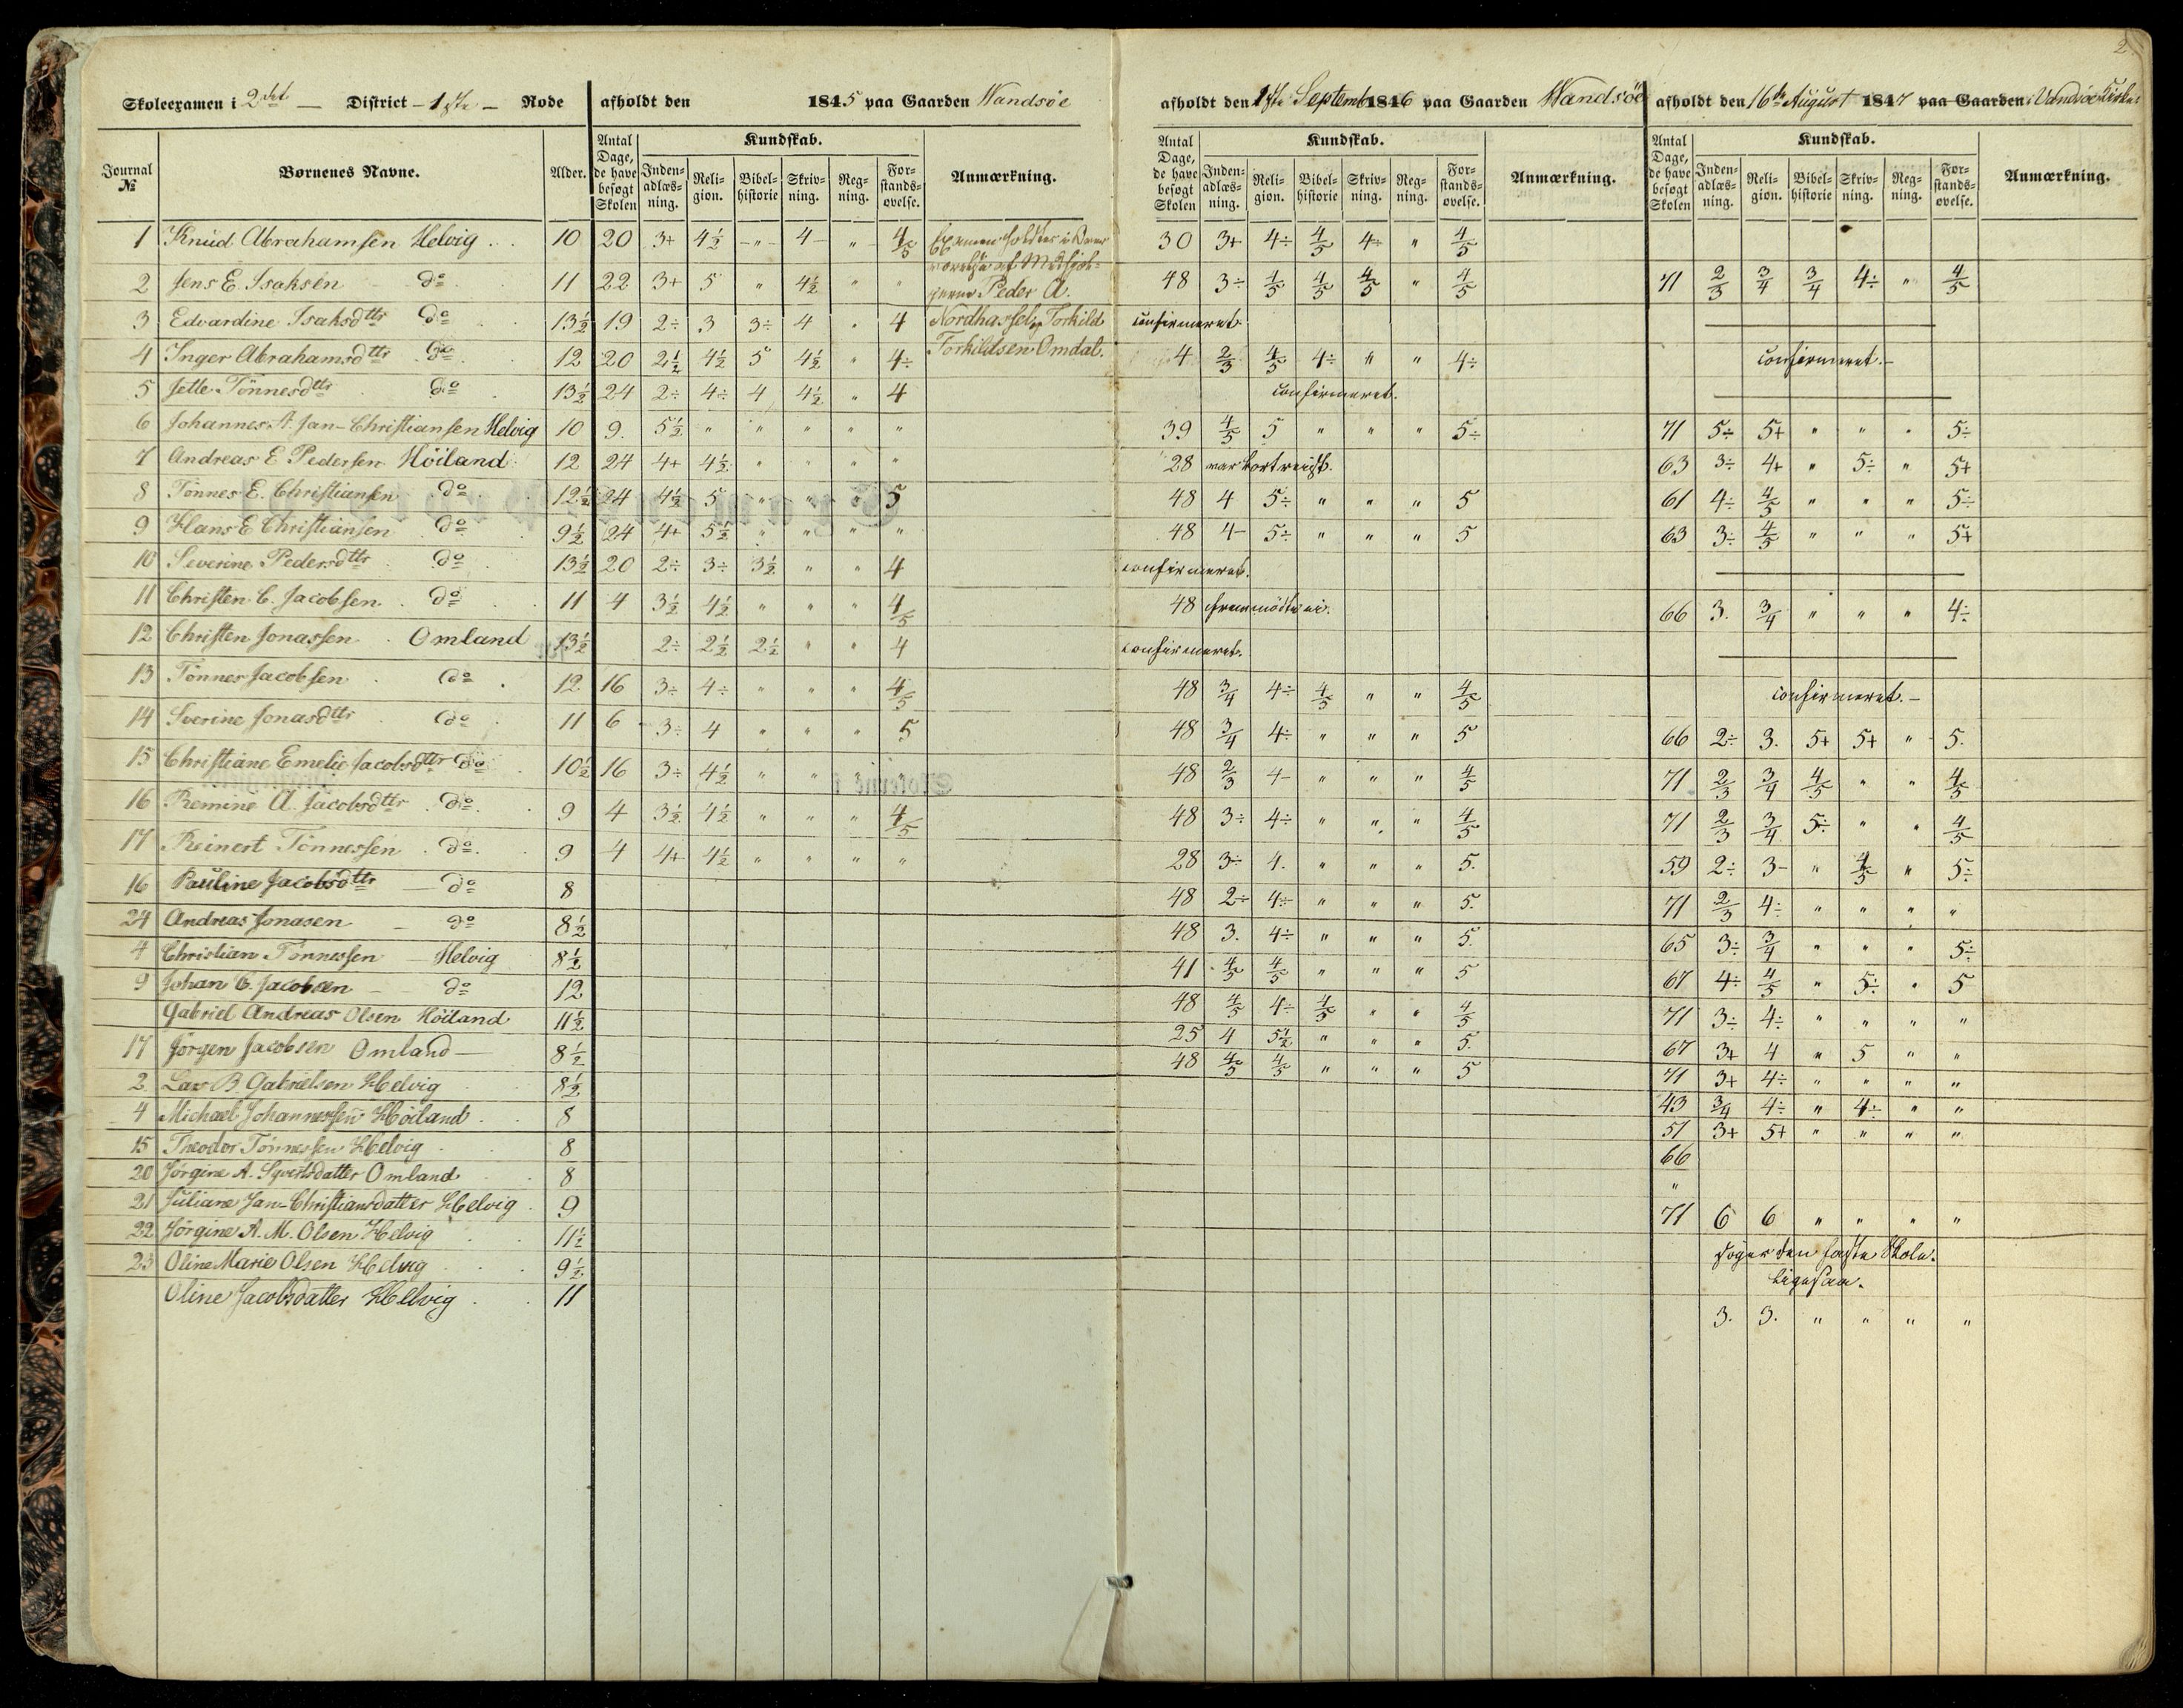 2.
Skoleexamen i 2det — District — 1ste — Rode afholdt den 1845 paa Gaarden Wandsöe afholdt den 1ste Septemb 1846 paa Gaarden Wandsöe afholdt den 16de August 1847 paa Gaarden i Vandsøe Kirke
Journal № Børnenes Navne. Alder. Antal Dage, de have besøgt Skolen Kundskab. Inden-adlæs-ning. Reli-gion. Bibel-historie Skriv-ning. Reg-ning. For-stands-øvelse. Anmærkning. Antal Dage, de have besøgt Skolen Kundskab. Inden-adlæs-ning. Reli-gion. Bibel-historie Skriv-ning. Reg-ning. For-stands-øvelse. Anmærkning. Antal Dage, de have besøgt Skolen Kundskab. Inden-adlæs-ning. Reli-gion. Bibel-historie Skriv-ning. Reg-ning. For-stands-øvelse. Anmærkning.
1 Knud Abrahamsen Helvig 10 20 3+ 4½ " 4 " 4/5 Examen holdtes i 30 3+ 4÷ 4/5 4÷ " 4/5
2 Jens E. Isaksen do 11 22 3+ 5 " 4½ " " af Medhjæl-perne Peder A. 48 3÷ 4/5 4/5 4/5 " 4/5 71 2/3 3/4 3/4 4÷ " 4/5
3 Edvardine Isaksdtr do 13½ 19 2÷ 3 3÷ 4 " 4 Nordhassel og Torkild confirmeret.
4 Inger Abrahamsdtr do 12 20 2½ 4½ 5 4½ " 4÷ Torkildsen Omdal. 4 2/3 4/5 4÷ " " 4÷ confirmeret.—
5 Jette Tönnesdtr do 13½ 24 2÷ 4÷ 4 4½ " 4 confirmeret.
6 Johannes A. Jan-Christiansen Helvig 10 9. 5½ " " " " " 39 4/5 5 " " " 5÷ 71 5÷ 5+ " " " 5÷
7 Andreas E Pedersen Höiland 12 24 4+ 4½ " " " " 28 var bortreist. 63 3÷ 4+ " 5÷ " 5+
8 Tönnes E. Christiansen do 12½ 24 4½ 5 " " " 5 48 4 5÷ " " " 5 61 4÷ 4/5 " " " 5÷
9 Hans E Christiansen do 9½ 24 4+ 5½ " " " " 48 4- 5÷ " " " 5 63 3÷ 4/5 " " " 5+
10 Severine Pedersdtr do 13½ 20 2÷ 3÷ 3½ " " 4 confirmeret.
11 Christen C. Jacobsen do 11 4 3½ 4½ " " " 4/5 48 fremmödte ei. 66 3. 3/4 " " " 4÷
12 Christen Jonassen Omland 13½ 2÷ 2½ 2½ " " 4 confirmeret.
13 Tönnes Jacobsen do 12 16 3÷ 4÷ " " " 4/5 48 3/4 4÷ 4/5 " " 4/5 confirmeret.—
14 Sverine Jonasdtr do 11 6 3÷ 4 " " " 5 48 3/4 4÷ " " " 5 66 2÷ 3. 5+ 5+ " 5.
15 Christiane Emelie Jacobsdtr do 10½ 16 3÷ 4½ " " " " 48 2/3 4- " " " 4/5 71 2/3 3/4 4/5 " " 4/5
16 Remine A. Jacobsdtr do 9 4 3½ 4½ " " " 4/5 48 3÷ 4÷ " " " 4/5 71 2/3 3/4 5÷ " " 4/5
17 Reinert Tönnessen do 9 4 4+ 4½ " " " " 28 3÷ 4. " " " 5. 59 2÷ 3- " 4/5 " 5÷
16 Pauline Jacobsdtr — do 8 48 2÷ 4÷ " " " 5. 71 2/3 4÷ " " " "
24 Andreas Jonasen — do 8½ 48 3. 4÷ " " " 5. 65 3÷ 3/4 " " " 5÷
4 Christian Tönnessen — Helvig 8½ 41 4/5 4/5 " " " 5 67 4÷ 4/5 " 5÷ " 5
9 Johan C. Jacobsen — do 12 48 4/5 4÷ 4/5 " " 4/5 71 3÷ 4÷ " " " "
Gabriel Andreas Olsen Höiland 11½ 25 4 5½ " " " 5. 67 3+ 4 " 5 " "
17 Jörgen Jacobsen Omland — 8½ 48 4/5 4/5 " " " 5 71 3+ 4÷ " " " "
2 Lars B Gabrielsen Helvig 8½ 43 3/4 4÷ " 4÷ " "
4 Michael Johannessen Höiland 8 51 3+ 5+ " " " "
15 Theodor Tönnessen Helvig 8 66
20 Jörgine A. Syvertsdatter Omland 8 "
21 Juliane Jan-Christiansdatter Helvig 9 71 6 6 " " " "
22 Jörgine A. M. Olsen Helvig 11½ søger den faste Skole.
23 Oline Marie Olsen Helvig 9½ Ligesaa.
Oline Jacobsdatter Helvig 11 3. 3. " " " "